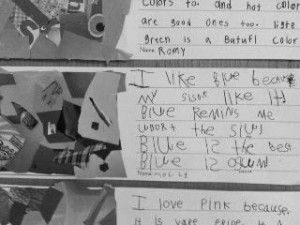 colors to. and hot color
are good ones too. light
green is a Batufl color
Name Romy
I like Blue becaus
my sistr like it
Blue Remins me
ubout the
Blue is the best
Blue is
Name
I love Pink because
it is vare